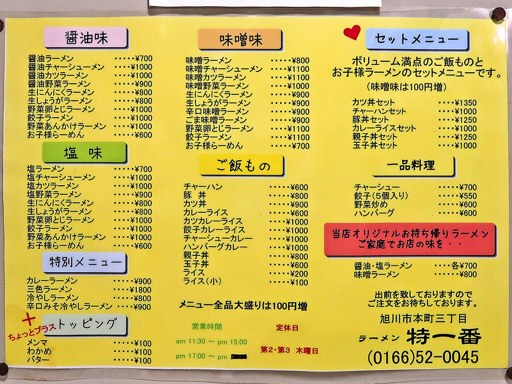 醤油味
醤油ラーメン ・・・・・¥700
醤油チャーシューメン ・・・・・¥1000
醤油カツラーメン ・・・・・¥1000
醤油野菜ラーメン ・・・・・¥900
生にんにくラーメン ・・・・・¥800
生しょうがラーメン ・・・・・¥800
野菜卵とじラーメン ・・・・・¥1000
餃子ラーメン ・・・・・¥1000
野菜あんかけラーメン ・・・・・¥1000
お子様らーめん ・・・・・¥600
塩 味
塩ラーメン ・・・・・¥700
塩チャーシューメン ・・・・・¥1000
塩カツラーメン ・・・・・¥1000
塩野菜ラーメン ・・・・・¥900
生にんにくラーメン ・・・・・¥800
生しょうがラーメン ・・・・・¥800
野菜卵とじラーメン ・・・・・¥1000
餃子ラーメン ・・・・・¥1000
野菜あんかけラーメン ・・・・・¥1000
お子様らーめん ・・・・・¥600
特別メニュー
カレーラーメン ・・・・・¥900
三色ラーメン ・・・・・¥1800
冷やしラーメン ・・・・・¥800
辛口みそ冷やしラーメン ・・・・・¥900
+ ちょっとプラス トッピング
メンマ ・・・・・¥100
わかめ ・・・・・¥100
バター ・・・・・¥100
味噌味
味噌ラーメン ・・・・・¥800
味噌チャーシューメン ・・・・・¥1100
味噌カツラーメン ・・・・・¥1100
味噌野菜ラーメン ・・・・・¥1000
生にんにくラーメン ・・・・・¥900
生しょうがラーメン ・・・・・¥900
辛口味噌ラーメン ・・・・・¥900
ごま味噌ラーメン ・・・・・¥900
野菜卵とじラーメン ・・・・・¥1100
餃子ラーメン ・・・・・¥1100
お子様らーめん ・・・・・¥700
ご飯もの
チャーハン ・・・・・¥600
豚 丼 ・・・・・¥800
カツ丼 ・・・・・¥900
カレーライス ・・・・・¥600
カツカレーライス ・・・・・¥1000
餃子カレーライス ・・・・・¥1000
チャーシューカレー ・・・・・¥1000
ハンバーグカレー ・・・・・¥1000
親子丼 ・・・・・¥800
玉子丼 ・・・・・¥600
ライス ・・・・・¥200
ライス(小) ・・・・・¥100
メニュー全品大盛りは100円増
営業時間 定休日
am 11:30 ～ pm 15:00
pm 17:00 ～ pm
第2・第3 木曜日
セットメニュー
ボリューム満点のご飯ものと
お子様ラーメンのセットメニューです。
(味噌味は100円増)
カツ丼セット ・・・・・¥1350
チャーハンセット ・・・・・¥1000
豚丼セット ・・・・・¥1250
カレーライスセット ・・・・・¥1000
親子丼セット ・・・・・¥1250
玉子丼セット ・・・・・¥1000
一品料理
チャーシュー ・・・・・¥700
餃子(5個入り) ・・・・・¥550
野菜炒め ・・・・・¥600
ハンバーグ ・・・・・¥600
当店オリジナルお持ち帰りラーメン
ご家庭でお店の味を・・
醤油・塩ラーメン ・・・・・各¥700
味噌ラーメン ・・・・・¥800
出前を致しておりますので
ご注文をお待ちしております。
旭川市本町三丁目
ラーメン 特一番
(0166)52-0045